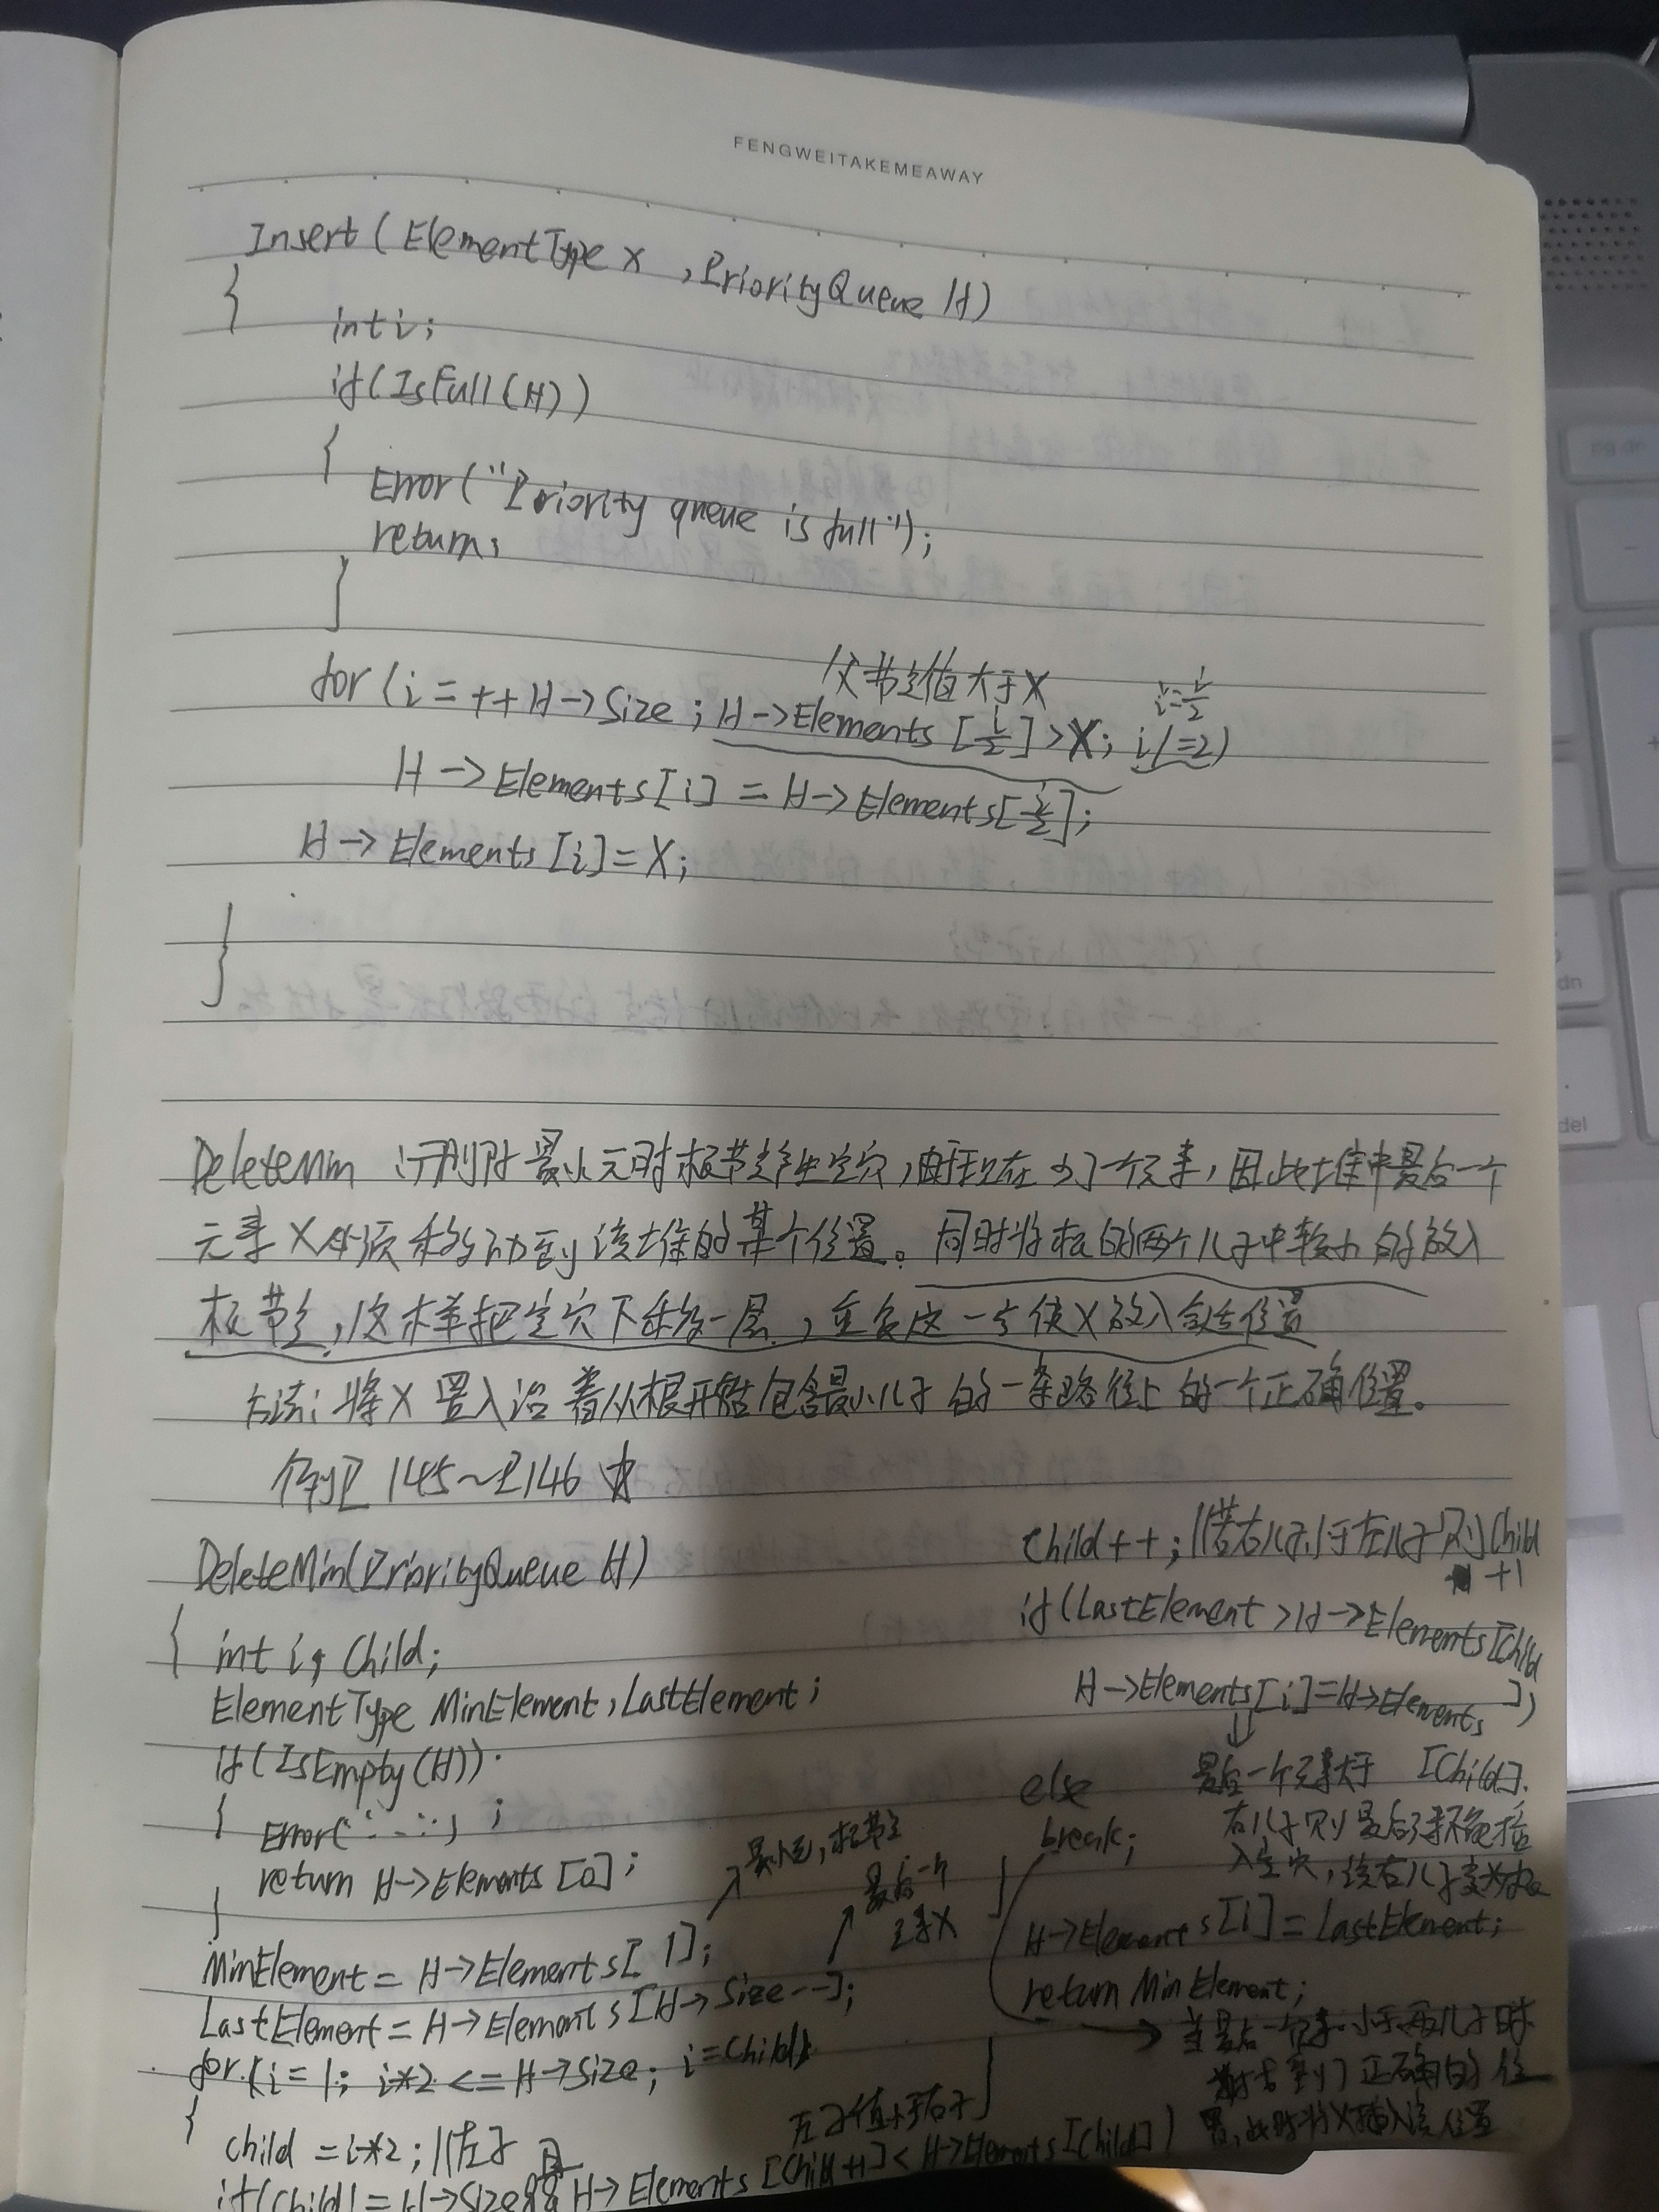 FENGWEITAKEMEAWAY
Insert (ElementType X, PriorityQueue H)
{
int i;
if (IsFull(H))
{
Error("Priority queue is full");
return;
}
父节点值大于X i=i/2
for (i = ++H->Size; H->Elements[i/2]>X; i/=2)
H->Elements[i] = H->Elements[i/2];
H->Elements[i]=X;
}
DeleteMin 当删除最小元时根节点产生空穴,由于现在少了一个元素,因此堆中最后一个
元素X必须移动到该堆的某个位置。同时将根的两个儿子中较小的放入
根节点,这样把空穴下移一层,重复这一步使X放入合适位置
方法:将X置入沿着从根开始包含最小儿子的一条路径上的一个正确位置。
例P145~P146
DeleteMin(PriorityQueue H)
{
int i, Child;
ElementType MinElement, LastElement;
if (IsEmpty(H))
{
Error( );
return H->Elements[0];
}
最小元,根节点
最后一个
元素X
MinElement = H->Elements[1];
LastElement = H->Elements[H->Size--];
for (i=1; i*2 <= H->Size; i=Child)
{
child = i*2; //左子
左子值大于右子
if(Child!=H->Size&&H->Elements[Child+1]<H->Elements[Child])
Child++; //若右儿子小于左儿子则Child
+1
if(LastElement>H->Elements[Child
])
H->Elements[i]=H->Elements
[Child].
最后一个元素大于
右儿子则最后元素不能插
入空穴,该右儿子变为
else
break;
}
H->Elements[i]=LastElement;
return MinElement;
}
当最后一个元素小于两儿子时
找到了正确的位
置,此时将X插入该位置